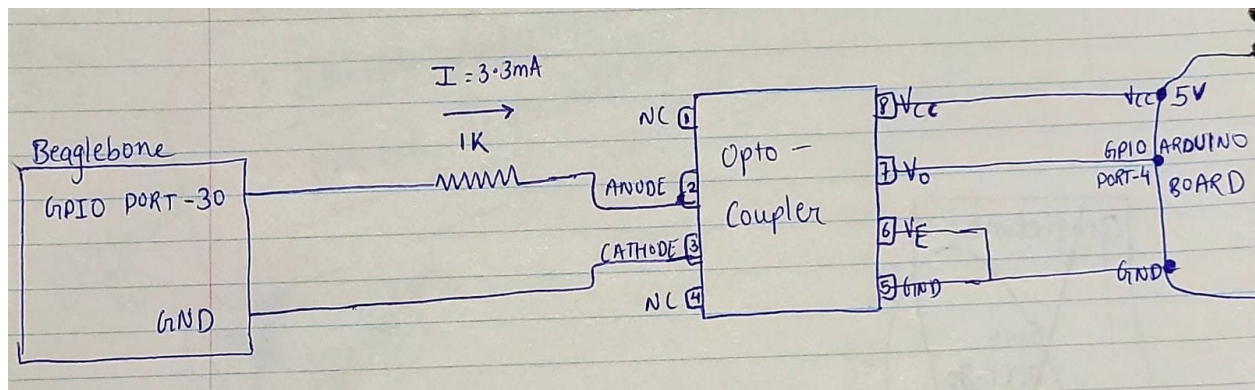 I = 3.3mA
1K
Beaglebone
GPIO PORT-30
GND
NC 1
ANODE 2
CATHODE 3
NC 4
Opto-
Coupler
8 VCC
7 VO
6 VE
5 GND
VCC 5V
GPIO ARDUINO
PORT-4 BOARD
GND